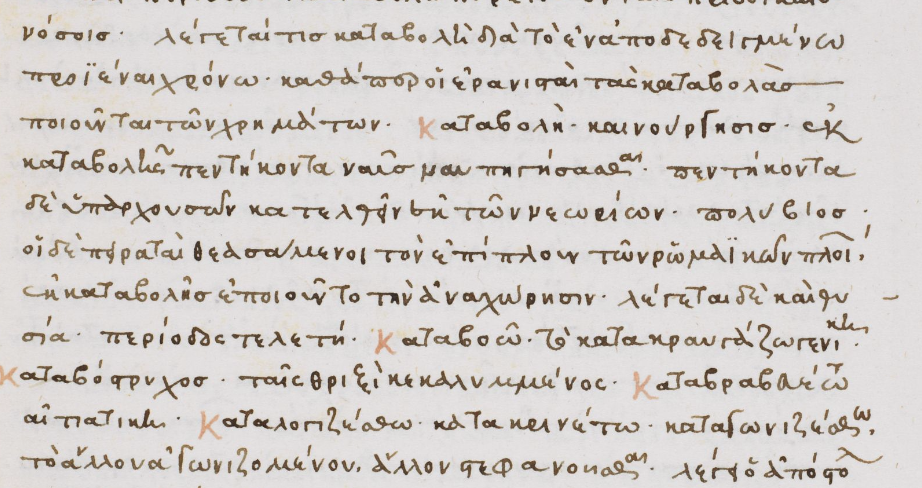 νόσοις· λέγεταί τις καταβολὴ διὰ τὸ ἐν ἀποδεδειγμένῳ
προϊέναι χρόνῳ· καθάπερ οἱ ἐρανισταὶ τὰς καταβολὰς
ποιοῦνται τῶν χρημάτων· Καταβολὴ· καινούργησις· ἐκ
καταβολῆς πεντήκοντα ναῦς ναυπηγήσασθαι· πεντήκοντα
δὲ ὑπάρχουσῶν κατελ τῶν νεωρίων· πολύβιος·
οἱ δὲ πειραταὶ θεασάμενοι τὸν ἐπίπλουν τῶν ῥωμαϊκῶν πλοί,
ἐκ καταβολῆς ἐποιοῦντο τὴν ἀναχώρησιν· λέγεται δὲ καὶ θυ
σία· περίοδος τελετή· Καταβοῶ· τὸ κατακραυγάζω γενικῆ·
Καταβόστρυχος· ταῖς θριξὶ κεκαλυμμένος· Καταβραβεύω
αἰτιατικῆ· Καταλογιζέσθω· κατακρινέτω· καταγωνιζέσθω,
τὸ ἄλλον ἀγωνιζομένον, ἄλλον στεφανοῦσθαι· λέγει ὁ ἀπόστο